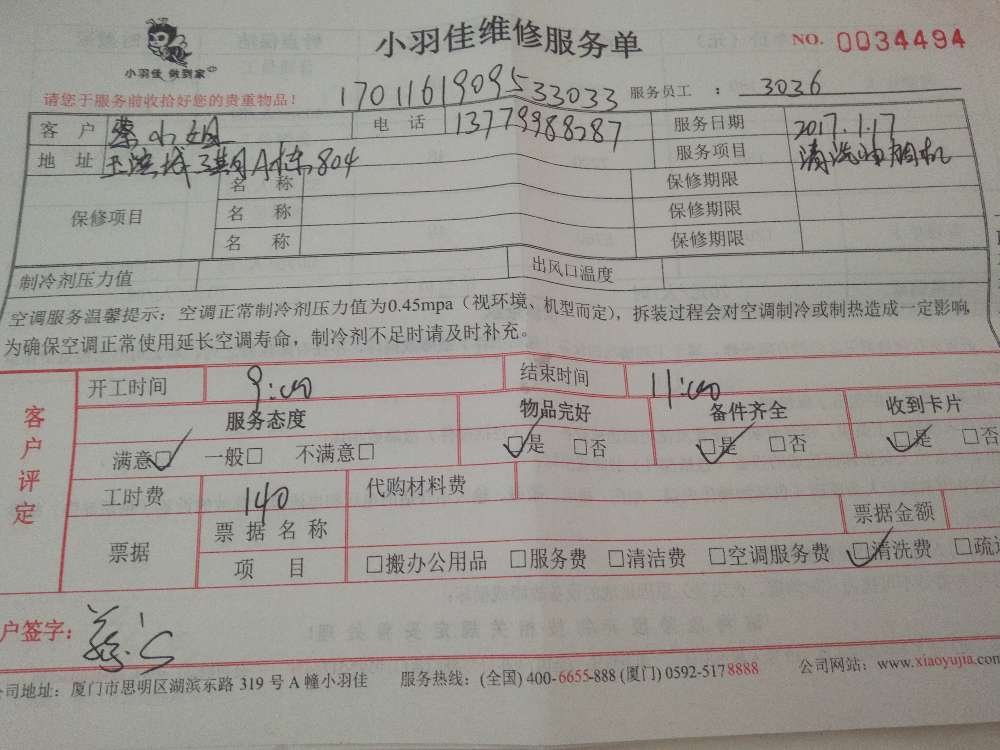 小羽佳维修服务单
NO. 0034494
小羽佳 做到家
请您于服务前收拾好您的贵重物品！
1701161909533033 服务员工 ： 3036
客户 蔡小姐 电话 13779988287 服务日期 2017.1.17
地址 三期A栋804 服务项目 清洗油烟机
保修项目 名称 保修期限
名称 保修期限
名称 保修期限
制冷剂压力值 出风口温度
空调服务温馨提示：空调正常制冷剂压力值为0.45mpa（视环境、机型而定），拆装过程会对空调制冷或制热造成一定影响，
为确保空调正常使用延长空调寿命，制冷剂不足时请及时补充。
客户评定
开工时间 9:00 结束时间 11:00
服务态度 物品完好 备件齐全 收到卡片
满意☑ 一般□ 不满意□ ☑是 □否 ☑是 □否 ☑是 □否
工时费 140 代购材料费
票据 票据名称 票据金额
项目 □搬办公用品 □服务费 □清洁费 □空调服务费 ☑清洗费 □疏
户签字：
公司地址：厦门市思明区湖滨东路 319 号 A 幢小羽佳 服务热线：(全国) 400-6655-888 (厦门) 0592-5178888 公司网站：www.xiaoyujia.com